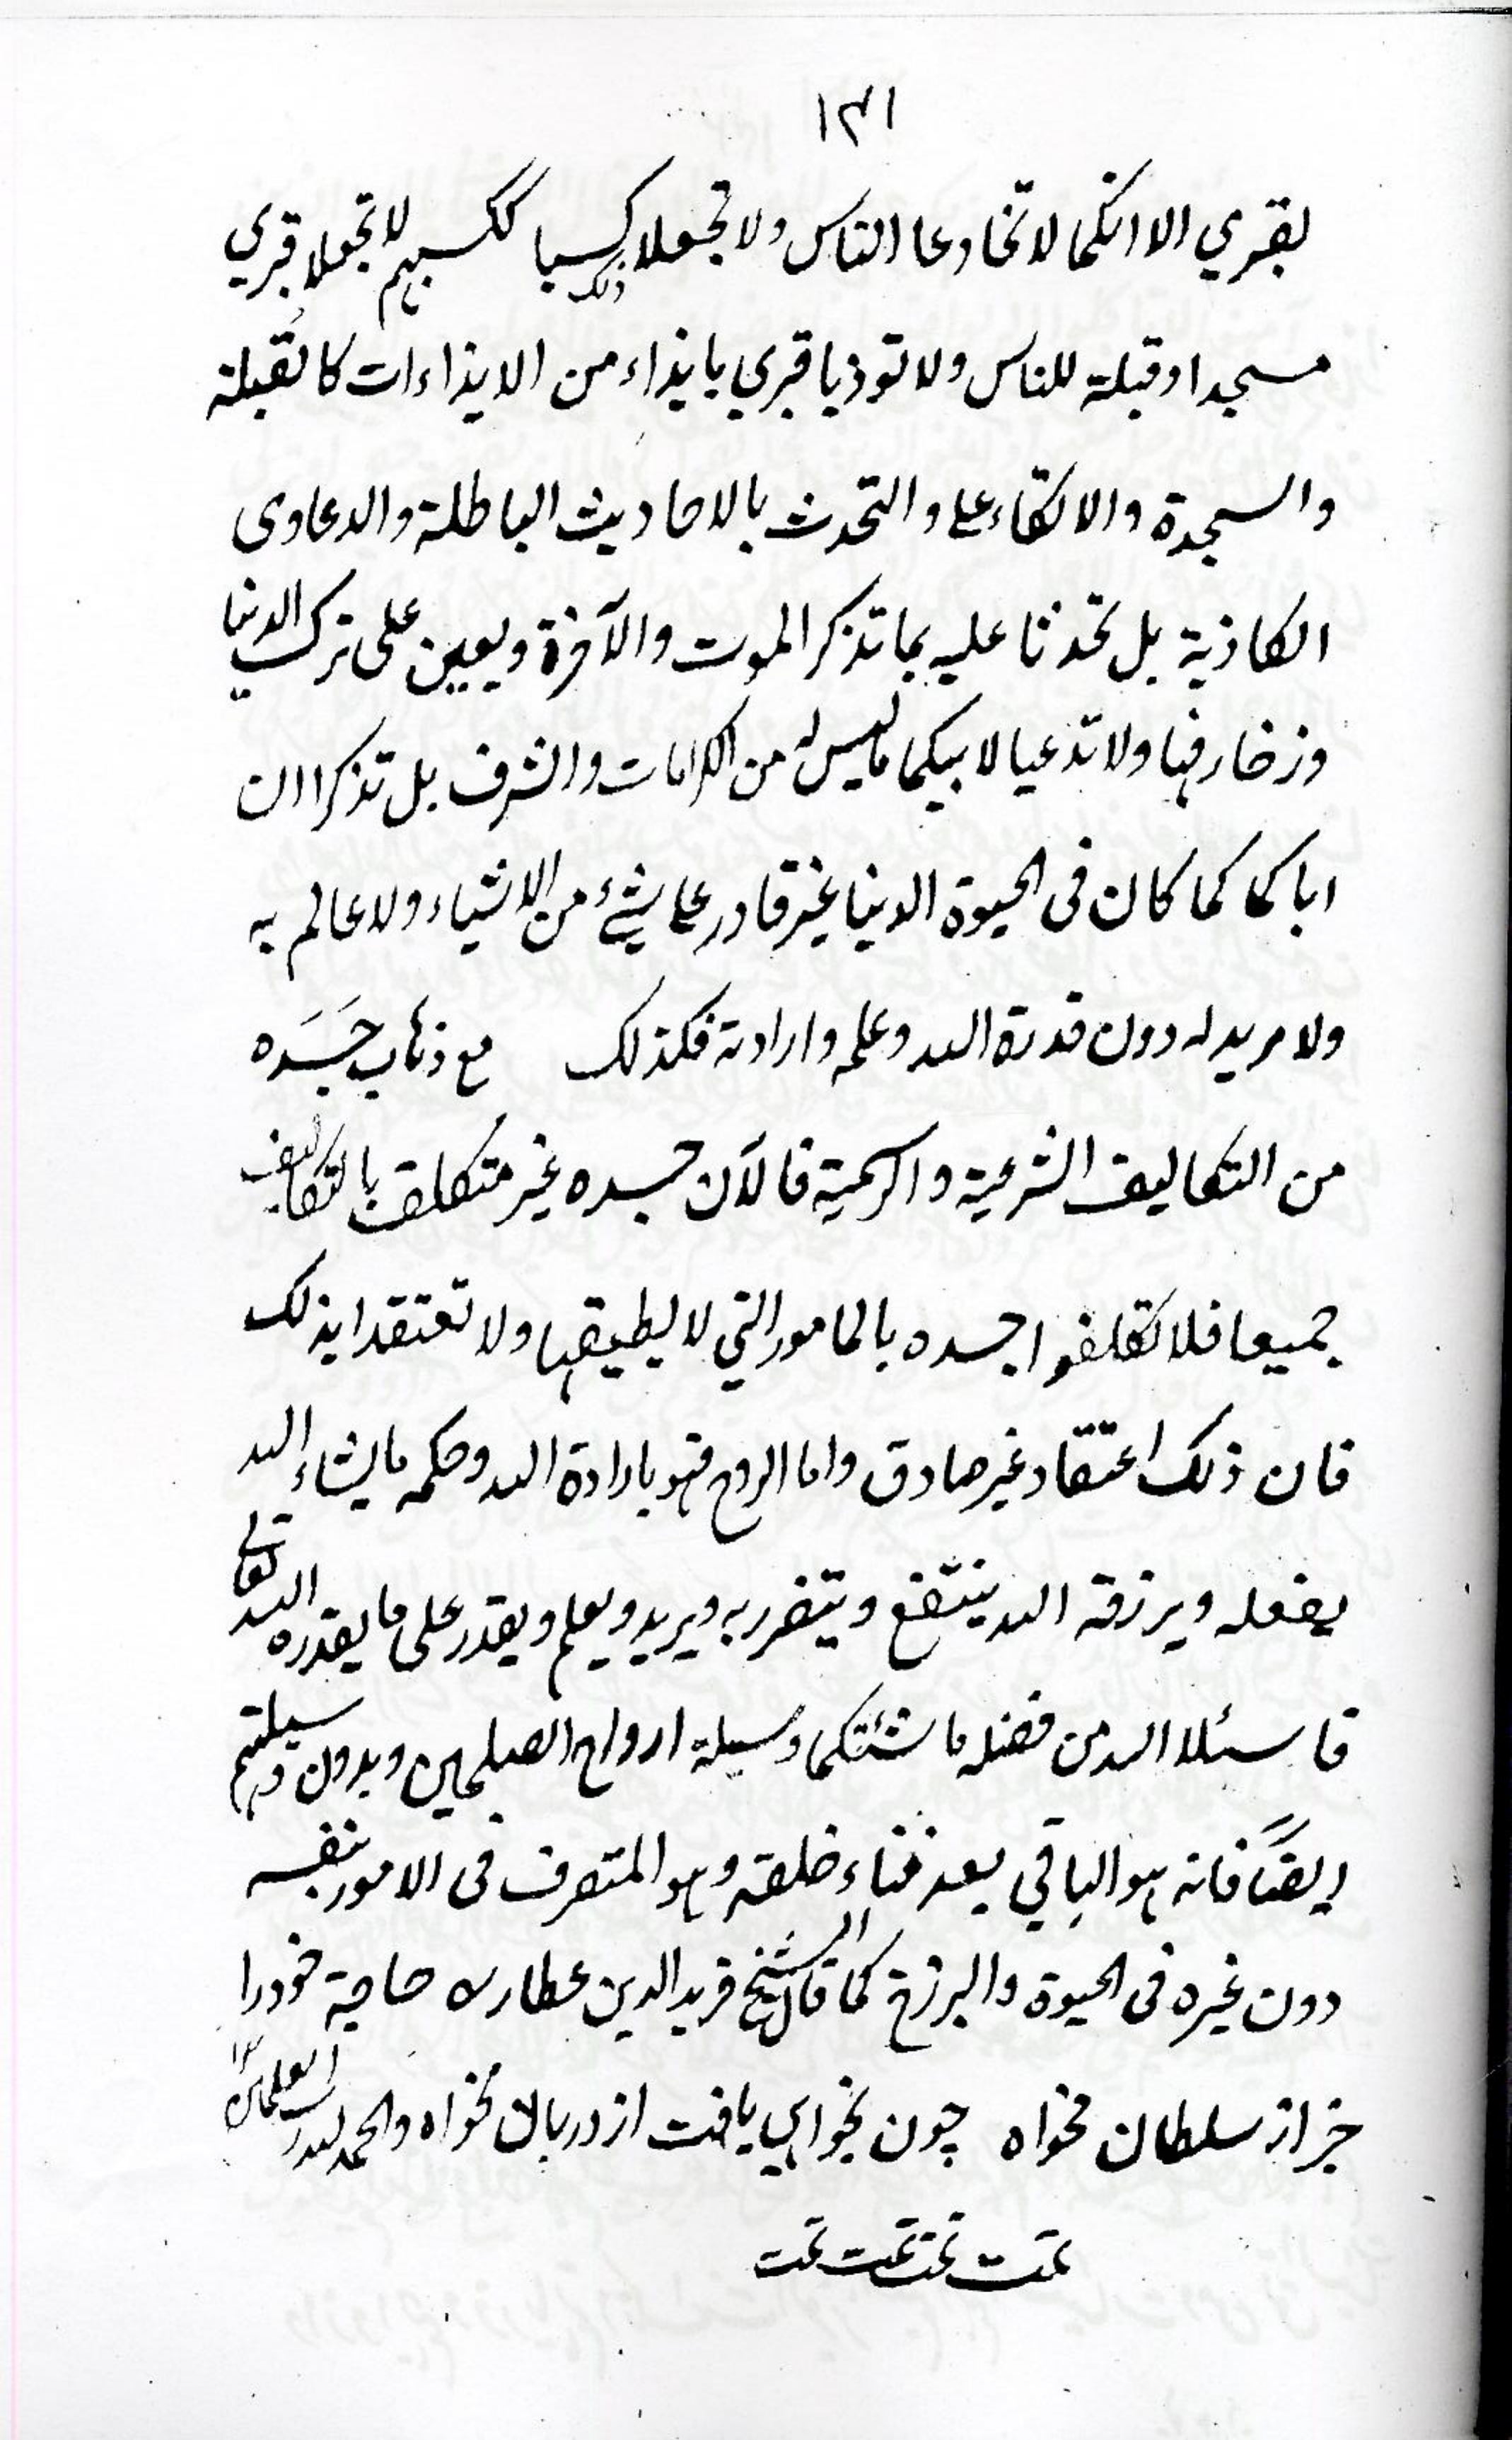 ١٣١
بقبري الا انكما لا تخادعا الناس ولا تجعلا ذلك كسبا ككسبهم لا تجعلا قبري
مسجدا او قبلة للناس ولا توذيا قبري بايذاء من الايذاءات كالقبلة
والسجدة والاتكاء علي والتحدث بالاحاديث الباطلة والدعاوى
الكاذبة بل تحدثا عليه بما تذكر الموت والآخرة ويعين على ترك الدنيا
وزخارفها ولا تدعيا لابيكما ما ليس له من الكرامات والشرف بل تذكرا ان
اباكما كما كان فى الحيوة الدنيا غير قادر علي شيئ من الاشياء ولا عالم به
ولا مريد له دون قدرة الله وعلمه وارادته فكذلك مع ذهاب جَسَده
من التكاليف الشرعية والرسمية فالآن جسده غير متكلف بالتكاليف
جميعا فلا تكلفوا جسده بالامور التي لا يطيقها ولا تعتقدا بذلك
فان ذلك اعتقاد غير صادق واما الروح فهو بارادة الله وحكمه ما يشاء الله
يفعله ويرزقه الله ينتفع ويتضرر به ويريد ويعلم ويقدر على ما يقدره الله تعالى
فاسئلا الله من فضله ما شئتكما وسيلة ارواح الصلحين وبدون وسيلتهم
ايضًا فانه هو الباقي بعد فناء خلقه وهو المتصرف فى الامور بنفسه
دون غيره فى الحيوة والبرزخ كما قال الشيخ فريد الدين عطار حاجة خود را
جز از سلطان مخواه چون نخواهي يافت از دربان مخواه والحمد لله رب العلمين
تمت تمت تمت تمت